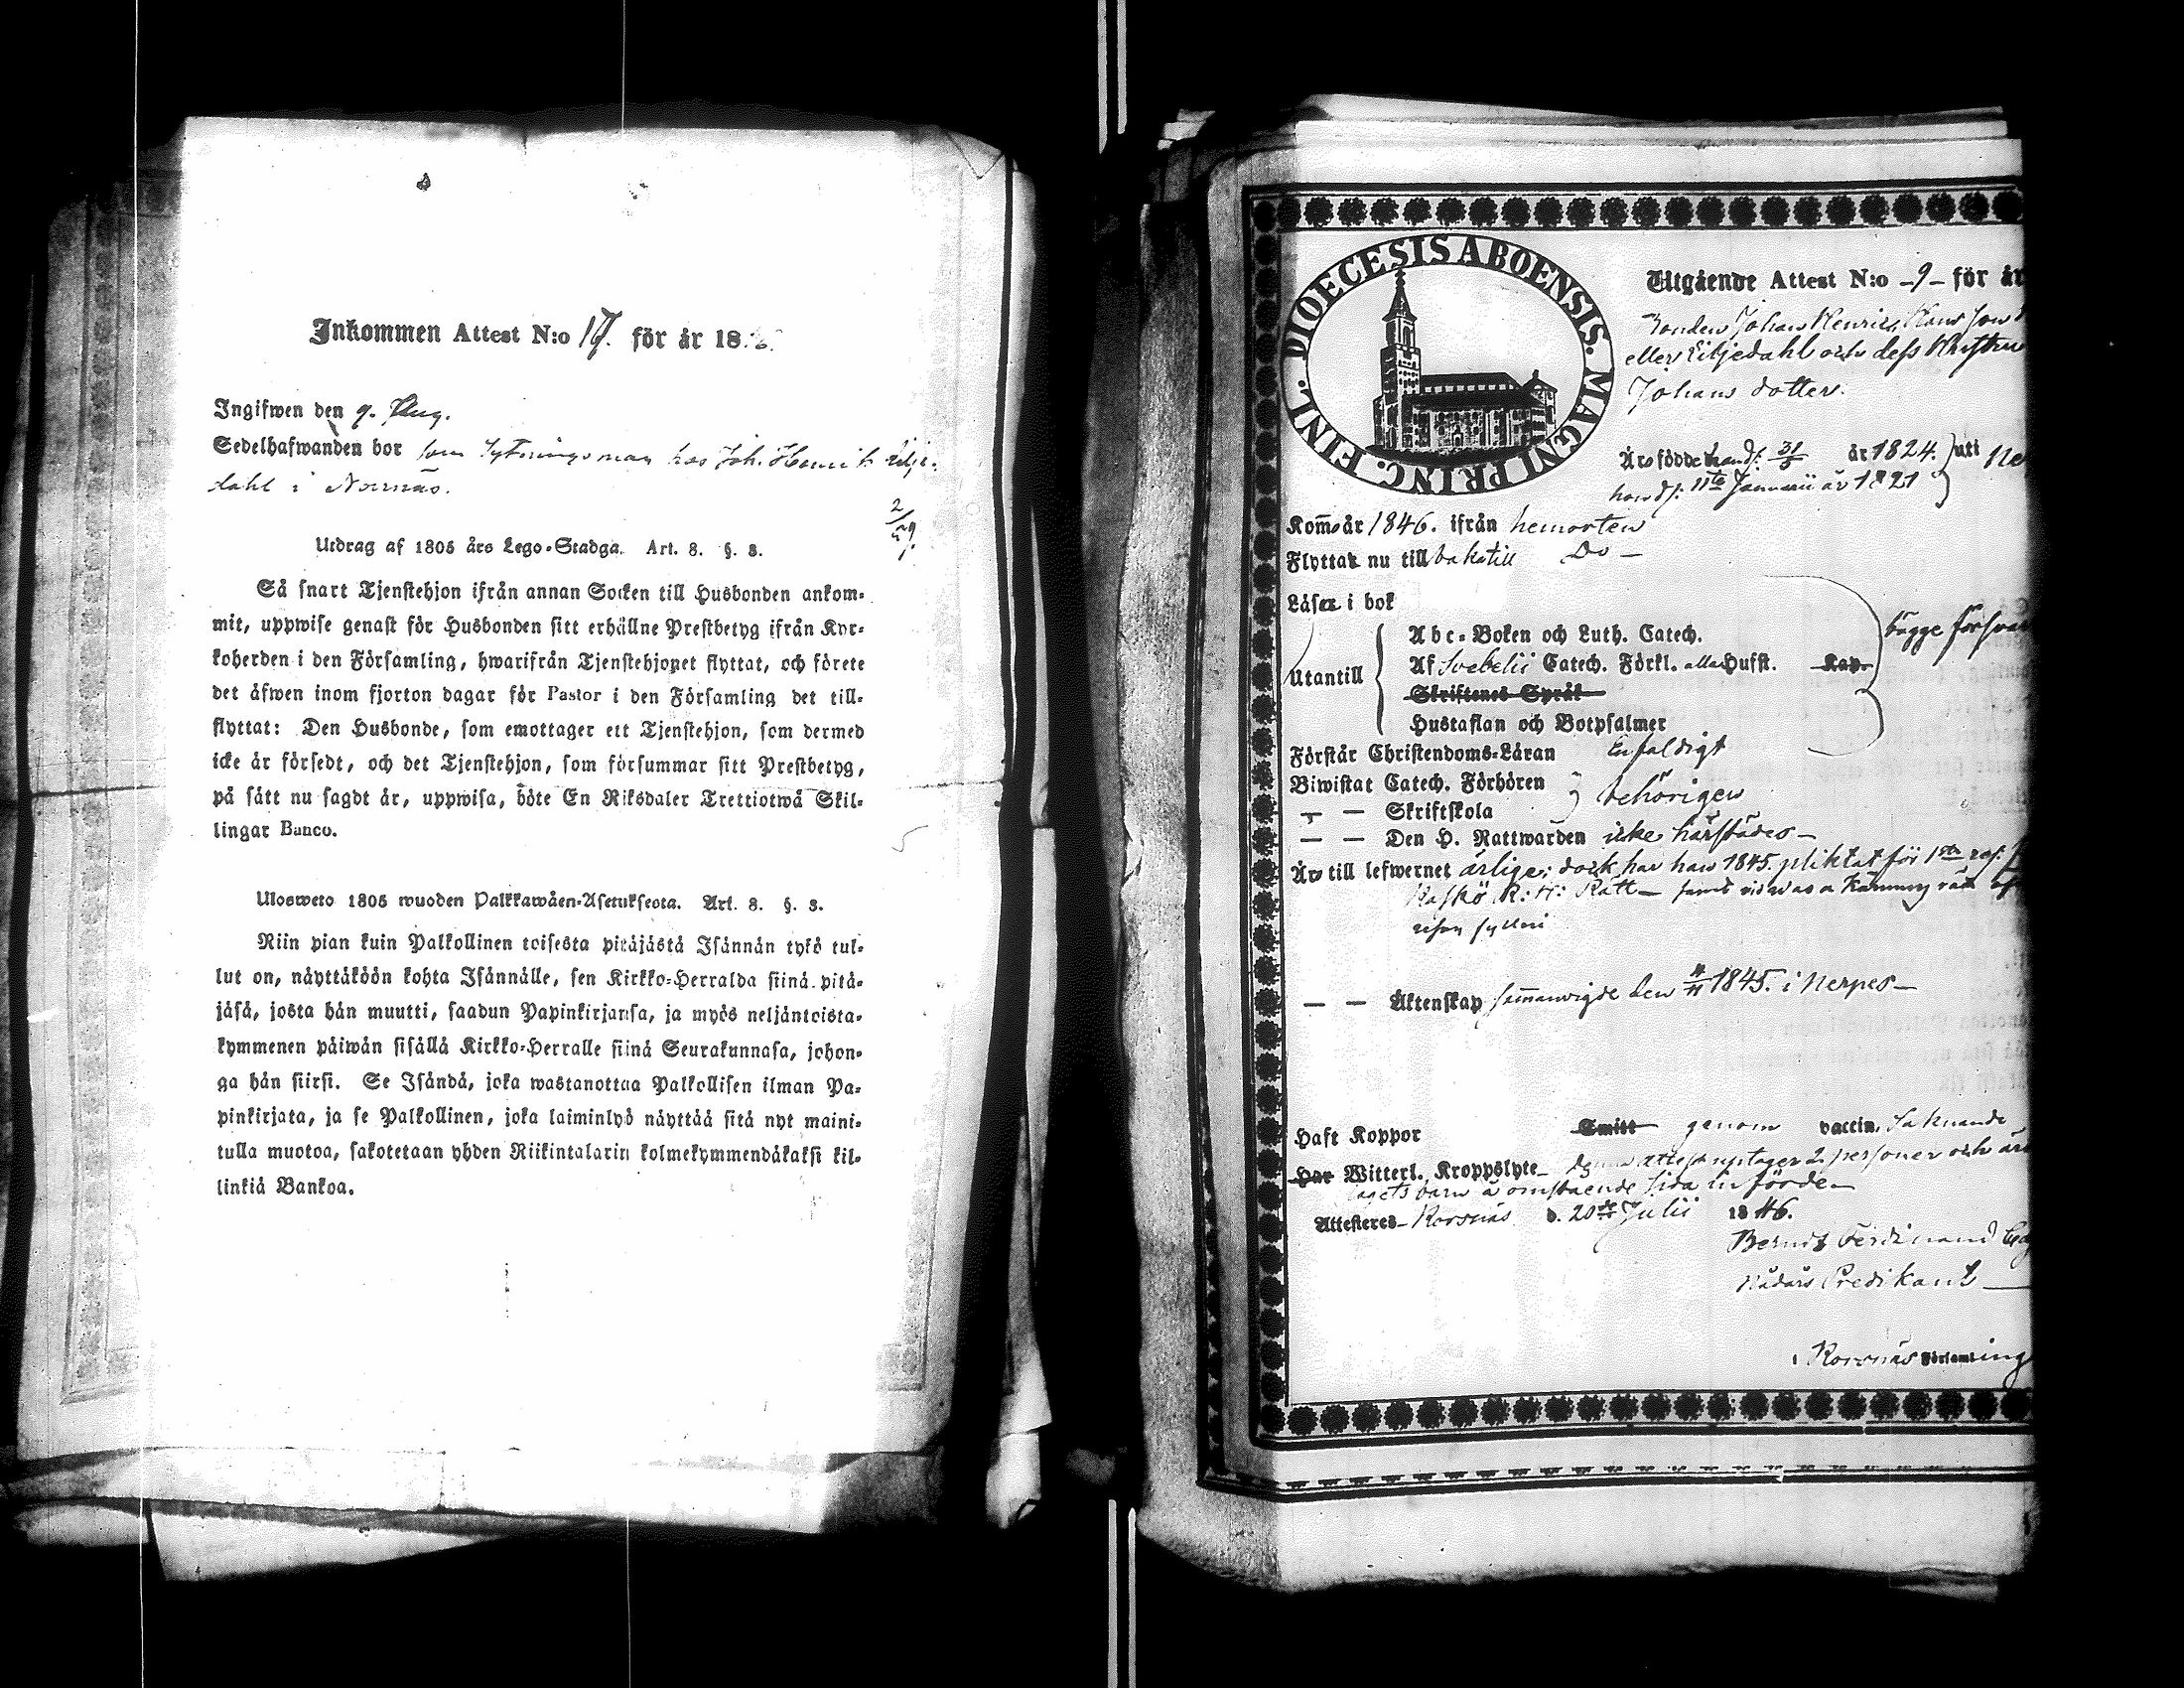 Inkommen Attest N:o 17. för år 18
Ingifwen den 9. Aug.
Sedelhafwanden bor som Sytningsman hos Joh. Henrik Lilje-
dahl i Norrnäs.
2/59.
Utdrag af 1805 års Lego-Stadga. Art. 8. §. 3.
Så snart Tjenstehjon ifrån annan Socken till Husbonden ankom-
mit, uppwise genast för Husbonden sitt erhållne Prestbetyg ifrån Kyr-
koherden i den Församling, hwarifrån Tjenstehjonet flyttat, och förete
det äfwen inom fjorton dagar för Pastor i den Församling det till-
flyttat: Den Husbonde, som emottager ett Tjenstehjon, som dermed
icke är försedt, och det Tjenstehjon, som försummar sitt Prestbetyg,
på sätt nu sagdt är, uppwisa, böte En Riksdaler Trettiotwå Skil-
lingar Banco.
Ulosweto 1805 wuoden Palkkawäen-Asetuksesta. Art. 8. §. 3.
Niin pian kuin Palkollinen toisesta pitäjästä Isännän tykö tul-
lut on, näyttäköön kohta Isännälle, sen Kirkko-Herralda siinä pitä-
jäsä, josta hän muutti, saadun Papinkirjansa, ja myös neljäntoista-
kymmenen päiwän sisällä Kirkko-Herralle siinä Seurakunnasa, johon-
ga hän siirsi. Se Isändä, joka wastanottaa Palkollisen ilman Pa-
pinkirjata, ja se Palkollinen, joka laiminlyö näyttää sitä nyt maini-
tulla muotoa, sakotetaan yhden Riikintalarin kolmekymmendäkaksi kil-
linkiä Bankoa.
DIOECESIS ABOENSIS. MAGNI PRINC. FINL.
Utgående Attest N:o -9- för år
Bonden Johan Henric Hans son
eller Liljedahl och dess Hustru
Johans dotter.
Äro födde han d: 31/3 år 1824. uti Ne
hon d: 11te Januarii år 1821
Kom̄o år 1846. ifrån hemorten
Flyttar nu tillbaka till Do —
Läser i bok
Utantill
Abc-Boken och Luth. Catech.
Af Svebelii Catech. Förkl. alla Hufst. Kap.
Skriftenes Språk
Hustaflan och Botpsalmer
bägge försvar
Förstår Christendoms-Läran Enfaldigt
Biwistat Catech. Förhören
— — Skriftskola behörigen
— — Den H. Nattwarden icke härstädes —
Äro till lefwernet ärlige; dock har han 1845. pliktat för 1sta
Kaskö R: H: Rätt — samt
resan fylleri
— — Äktenskap sam̄anvigde den 4/11 1845. i Nerpes —
Haft Koppor Smitt genom vaccin. Saknande
Har Witterl. Kroppslyte — denna attest uptager 2 personer och är
barn å omstående sida införde —
Attesteres Korsnäs d. 20de Julii 1846.
Bernds Ferdinand
Nådårs Predikant —
i Korsnäs Församling